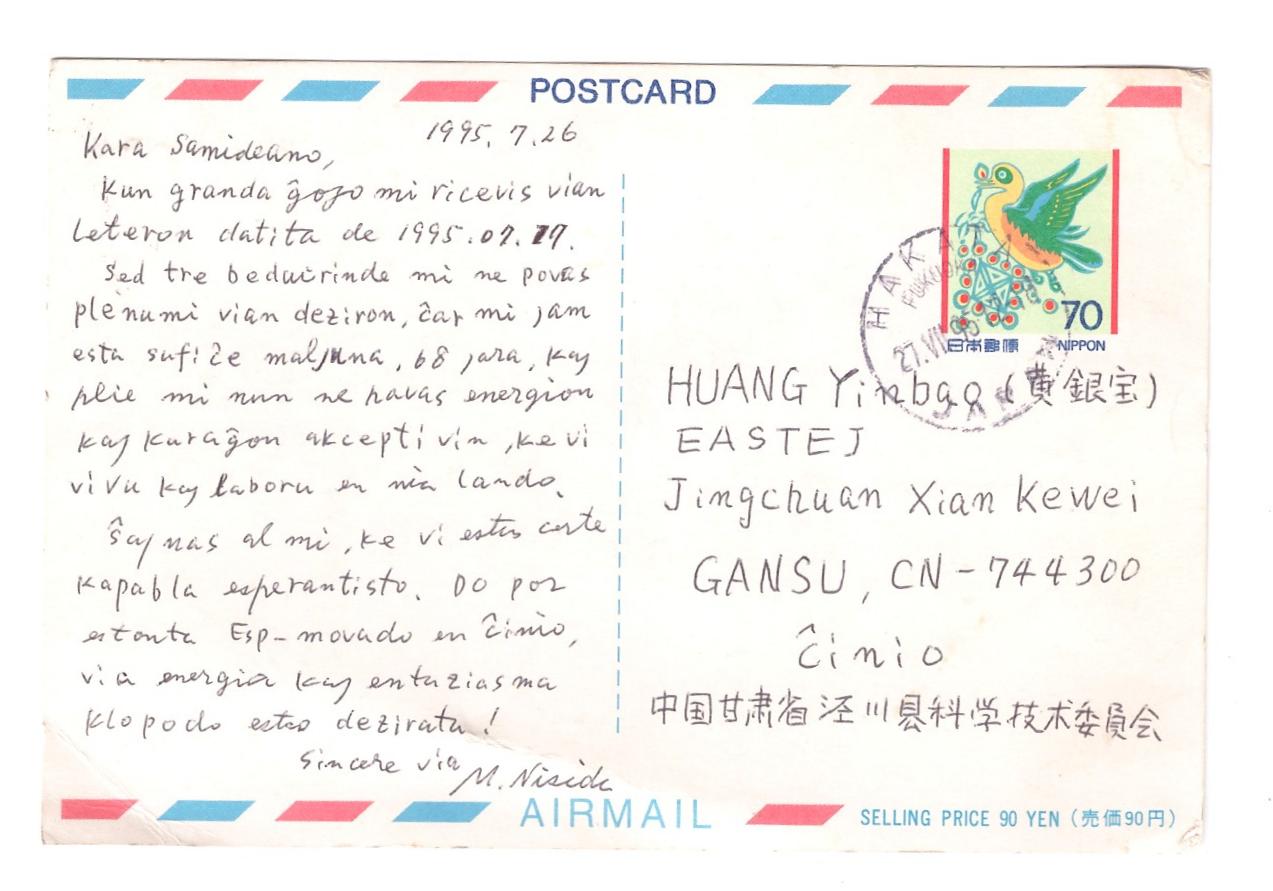 POSTCARD
1995. 7. 26
Kara Samideano,
Kun granda ĝojo mi ricevis vian
leteron datita de 1995.07.17.
Sed tre bedaŭrinde mi ne povas
plenumi vian deziron, ĉar mi jam
esta sufiĉe maljuna, 68 jara, kaj
plie mi nun ne havas energion
kaj kuraĝon akcepti vin, ke vi
vivu kaj laboru en nia lando.
Ŝajnas al mi, ke vi estas certe
kapabla esperantisto. Do por
estonta Esp-movado en Ĉinio,
via energia kaj entuziasma
klopodo estas dezirata!
Sincere via
M. Nisida
HAKATA
FUKUOKA
27.VII.95
JAPAN
70
日本郵便 NIPPON
HUANG Yinbao (黄銀宝)
EASTEJ
Jingchuan Xian Kewei
GANSU, CN-744300
Ĉinio
中国甘肃省泾川县科学技术委員会
AIRMAIL
SELLING PRICE 90 YEN (売価90円)